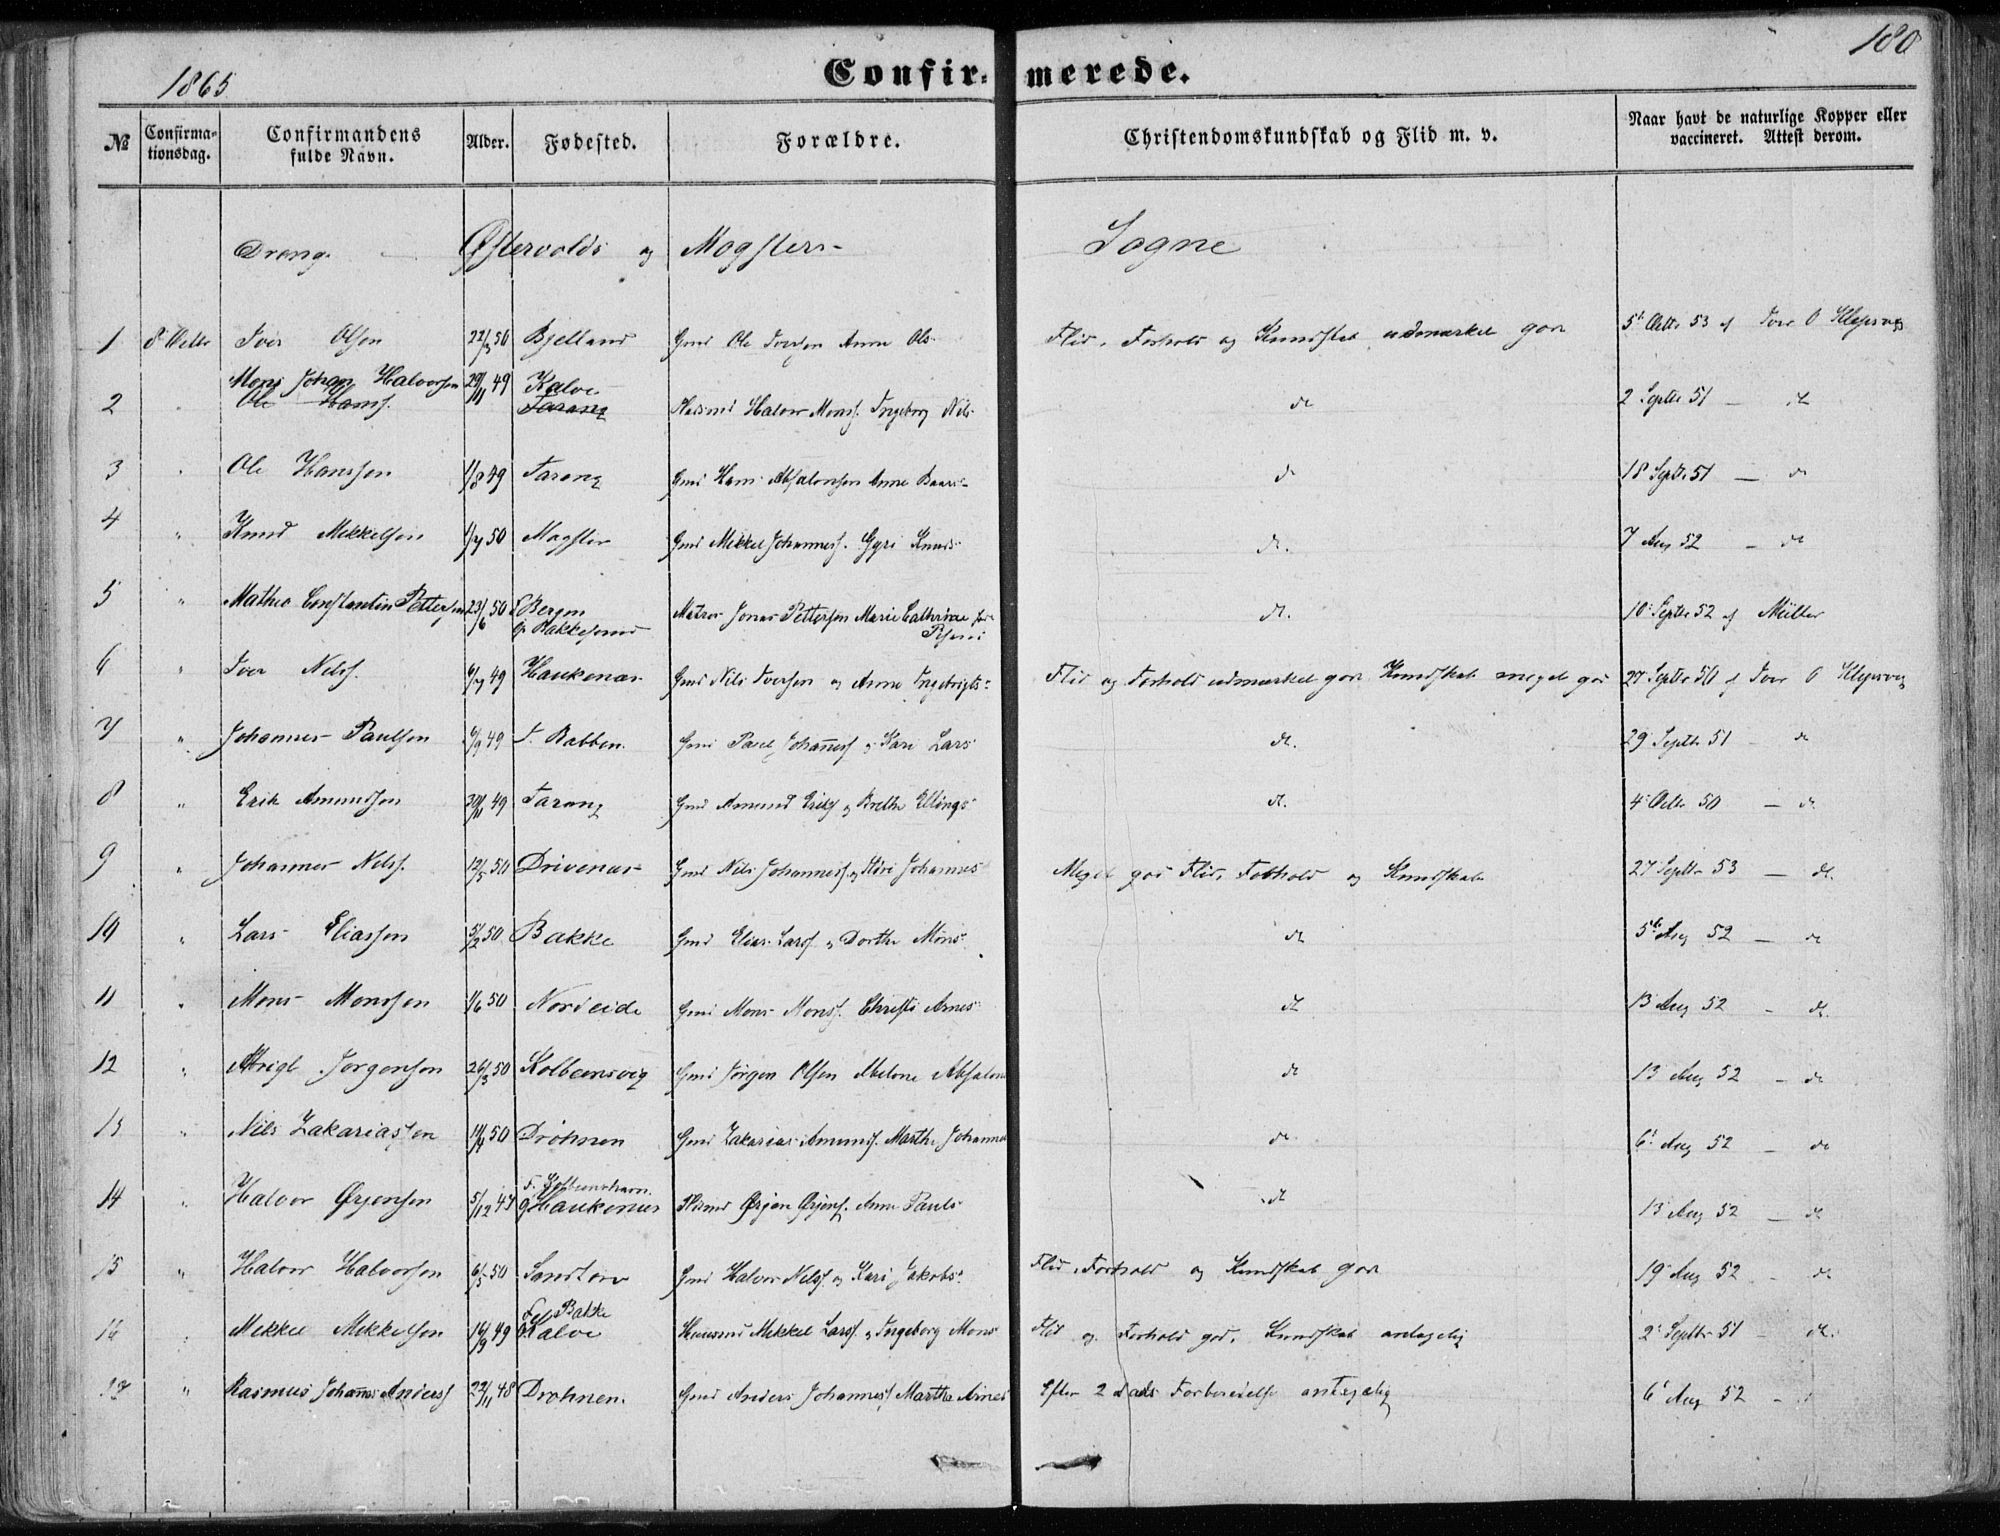 180
1865
Confir- merede.
№ Confirma-tionsdag. Confirmandens fulde Navn. Alder. Fødested. Forældre. Christendomskundskab og Flid m. v. Naar havt de naturlige Kopper eller vaccineret. Attest derom.
Dreng. Østervolds og Møgsters Sogne
1 8 Octbr Iver Olsen 22/3 50 Bjelland Gmd Ole Iversen Anne Ols- Flid, Forhold og Kundskab udmærket god 5t Octbr 53 af Iver O Klepsvig
Mons Johan Halvorsen 29/11 49 Kalve
2 " Ole Hanss. Tarang Huusmd Halvor Monss. Ingeborg Nils- do 2 Septbr 51 — do
3 " Ole Hanssen 1/8 49 Tarang Gmd Hans Absalonsen Anne Baars- do 18 Septbr 51 — do
4 " Knud Mikkelsen 1/7 50 Møgster Gmd Mikkel Johanness. Gyri Knuds- do. 7 Aug 52 — do
5 " Matheo Constantin Pettersen 23/6 50 f Bergen Matros Jonas Pettersen Marie Cathrine do. 10 Septbr 52 af Müller
og Bakkesund
6 " Iver Nilss. 6/7 49 Haukenæs Gmd Nils Iversen og Anne Ingebrigts- Flid og Forhold udmærket god Kundskab meget god 27 Septbr 50 af Iver O Klepsvig
7 " Johannes Paulsen 6/9 49 S. Rabben. Gmd Paul Johanness og Kari Lars- do. 29 Septbr 51 — do
8 " Erik Amundsen 30/11 49 Tarang Gmd Amund Eriks og Brethe Ellings- do. 4 Octbr 50 — do.
9 " Johannes Nilss. 12/5 50 Drivenæs Gmd Nils Johanness og Kari Johannes- Meget god Flid, Forhold og Kundskab 27 Septbr 53 — do.
10 " Lars Eliassen 5/2 50 Bakke Gmd Elias Larss og Dorthe Mons- do 5t Aug 52 — do
11 " Mons Monssen 1/6 50 Nordeide Gmd Mons Monss. Christi Arnes- do 13 Aug 52 — do.
12 " Jørgensen 26/3 50 Kolbeensvig Gmd Jørgen Olsen Abelone Absalons do 13 Aug 52 — do
13 " Nils Zakariassen 50 Drøhnen Gmd Zakarias Amunds. Marthe Johannes do. 6t Aug 52 — do
14 " Halvor Ørjensen 5/12 Haukenæs Huusmd Ørjan Ørjens. Anne Pauls- do 13 Aug 52 — do
15 " Halvor Halvorsen 6/5 50 Sandtorv Gmd Halvor Nilss. og Kari Jakobs- Flid, Forhold og Kundskab god 19 Aug 52 — do
Bakke
16 " Mikkel Mikkelsen 16/9 49 Kalve Huusmd Mikkel Larss. og Ingeborg Mons- Flid og Forhold god, Kundskab antagelig 2 Septbr 51 — do.
17 " Rasmus Johannes Anderss 22/11 48 Drøhnen. Gmd Anders Johanness Marthe Arnes Efter 2 Aars Forberedelse antagelig 6t Aug 52 —